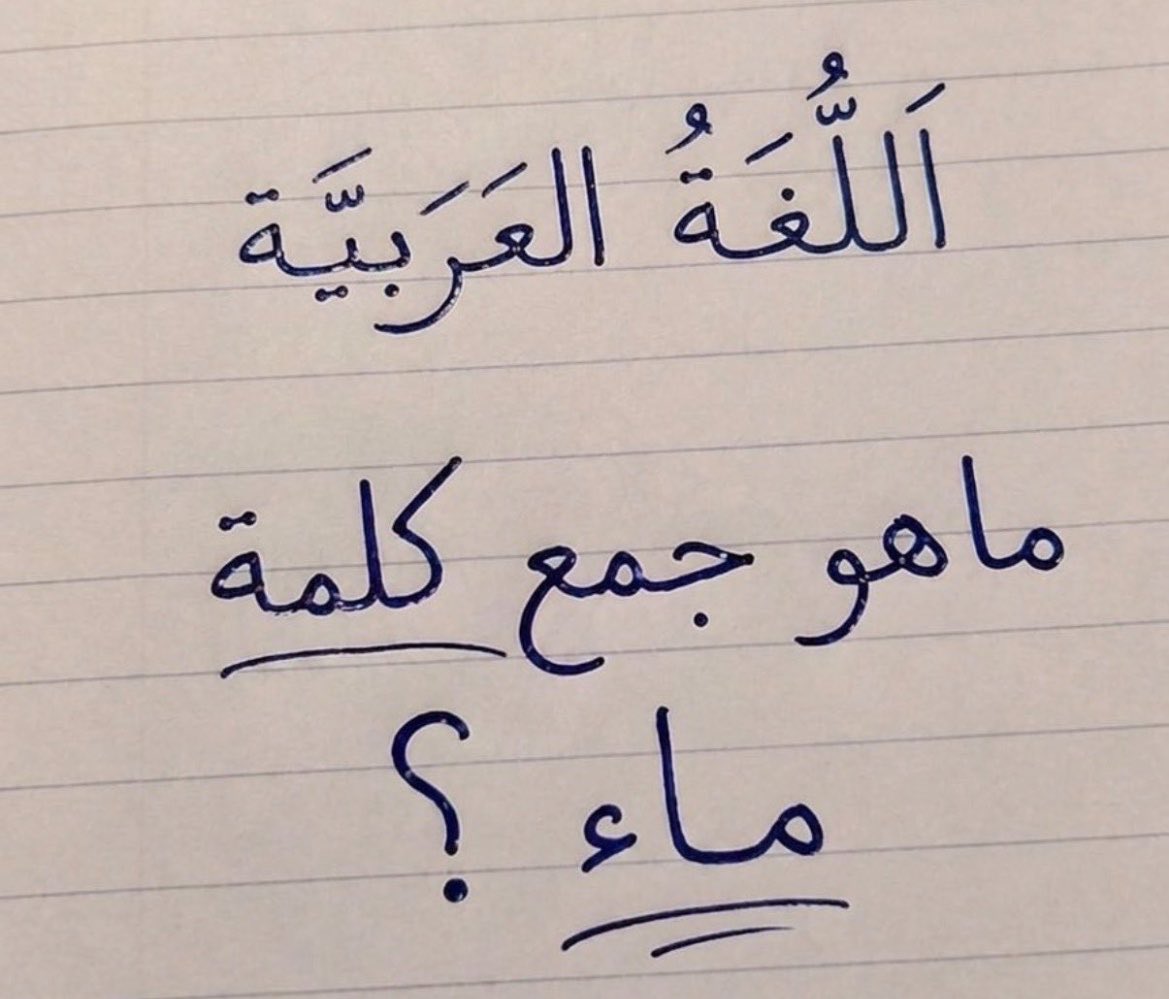 اَللُّغَةُ العَرَبيَّة
ماهو جمع كلمة
ماء ؟